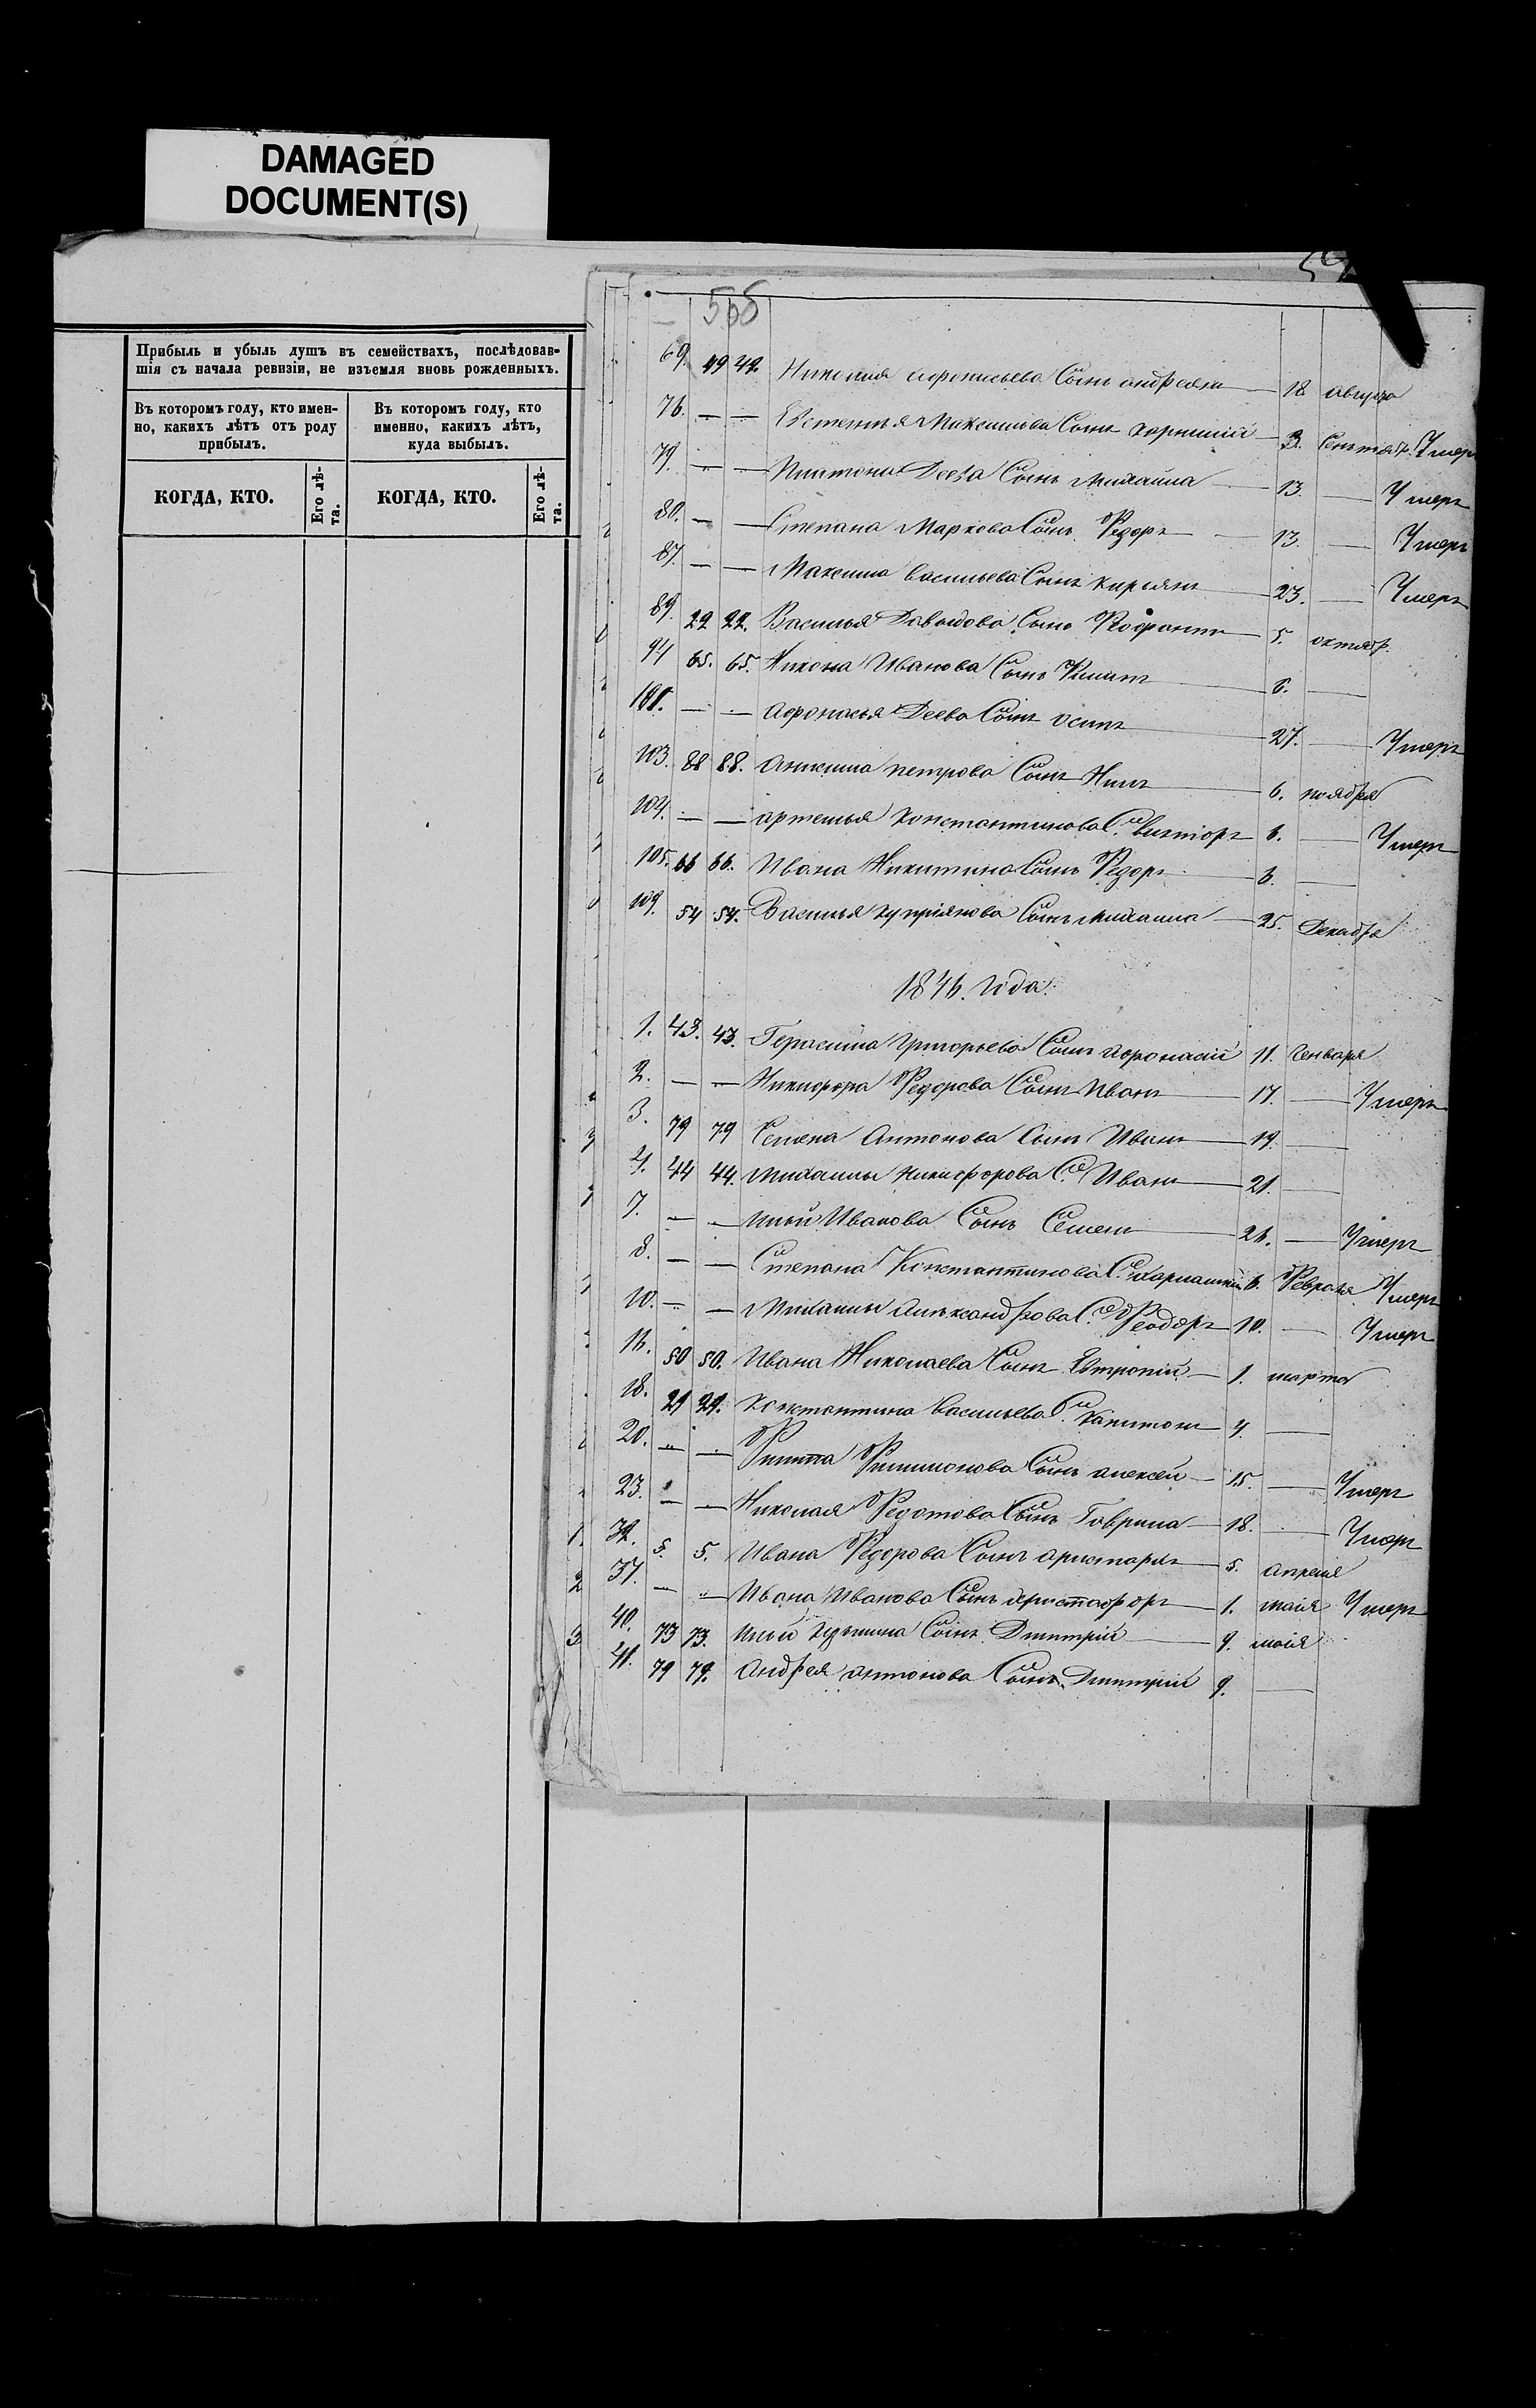 DAMAGED
DOCUMENT(S)
Прибыль и убыль душъ въ семействахъ, послѣдовав-
шія съ начала ревизіи, не изъемля вновь рожденныхъ.
Въ которомъ году, кто имен-
но, какихъ лѣтъ отъ роду
прибылъ.
Въ которомъ году, кто
именно, какихъ лѣтъ,
куда выбылъ.
КОГДА, КТО.
Его лѣ-
та.
КОГДА, КТО.
Его лѣ-
та.
69. 49 49. Николая Афонасьева Сынъ андреянъ 18 августа
76. — — Евстегнея Максимова Сынъ корнилий 3. Сентябр. Умеръ
79. — — Платона Деева Сынъ Михайла 13. — Умеръ
80. — — Степана Маркова Сынъ Федоръ 13. — Умеръ
87. — — Максима васильева Сынъ кирьянъ 23. — Умеръ
89. 22 22. Василья Давыдова Сынъ 5. октябр.
94 65. 65. Никона Иванова Сынъ Филатъ 6. —
101. — — Афонасья Деева Сынъ осипъ 27. — Умеръ
103. 88 88. Анисима петрова Сынъ Нилъ 6. ноября
104. — — артемья константинова С. викторъ 6. — Умеръ
105. 66 66. Ивана Никитина Сынъ Федоръ 6. —
109. 54 54. Василья куприянова Сынъ михаила 25. Декабря
1846. года.
1. 43. 43. Герасима Григорьева Сынъ афонасий 11. Генваря
2. — — Никифора Федорова Сынъ Иванъ 17. — Умеръ
3. 79 79 Семена Антонова Сынъ Иванъ 19. —
4. 44 44. Михаилы Никифорова С. Иванъ 21. —
7. — — Ильи Иванова Сынъ Семенъ 26. — Умеръ
8. — — Степана Константинова С. 6. Февраля Умеръ
10. — — Михаилы Александрова С. Феодоръ 10. — Умеръ
16. 50 50. Ивана Николаева Сынъ Евтропий 1. марта
18. 29 29. Константина васильева С. Капитонъ 4. —
20. — — Филипа Филимонова Сынъ алексей 15. — Умеръ
23. — — Николая Федотова Сынъ Гаврила 18. — Умеръ
1. 32. 5. 5. Ивана Федорова Сынъ аристархъ 5. апреля
2 37. — — Ивана Иванова Сынъ христофоръ 1. маія Умеръ
3 40. 73 73. Ильи кузьмина Сынъ Дмитрій 9. маія
41. 79 79. Андрея антонова Сынъ Дмитрій 9. —